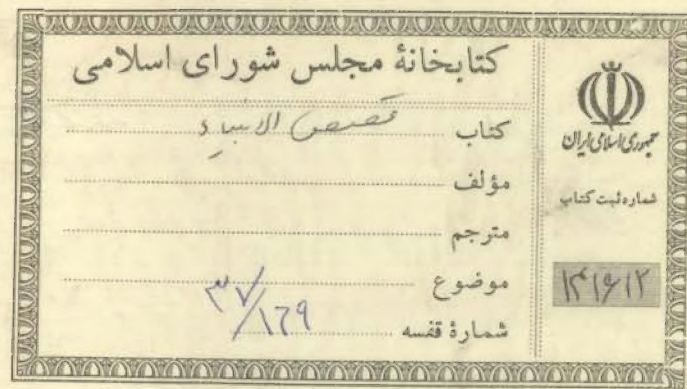 کتابخانهٔ مجلس شورای اسلامی
کتاب قصص الانبیاء
مؤلف
مترجم
موضوع
شمارهٔ قفسه ۳۷/۱۲۹
جمهوری اسلامی ایران
شماره ثبت کتاب
۱۴۱۶۱۲